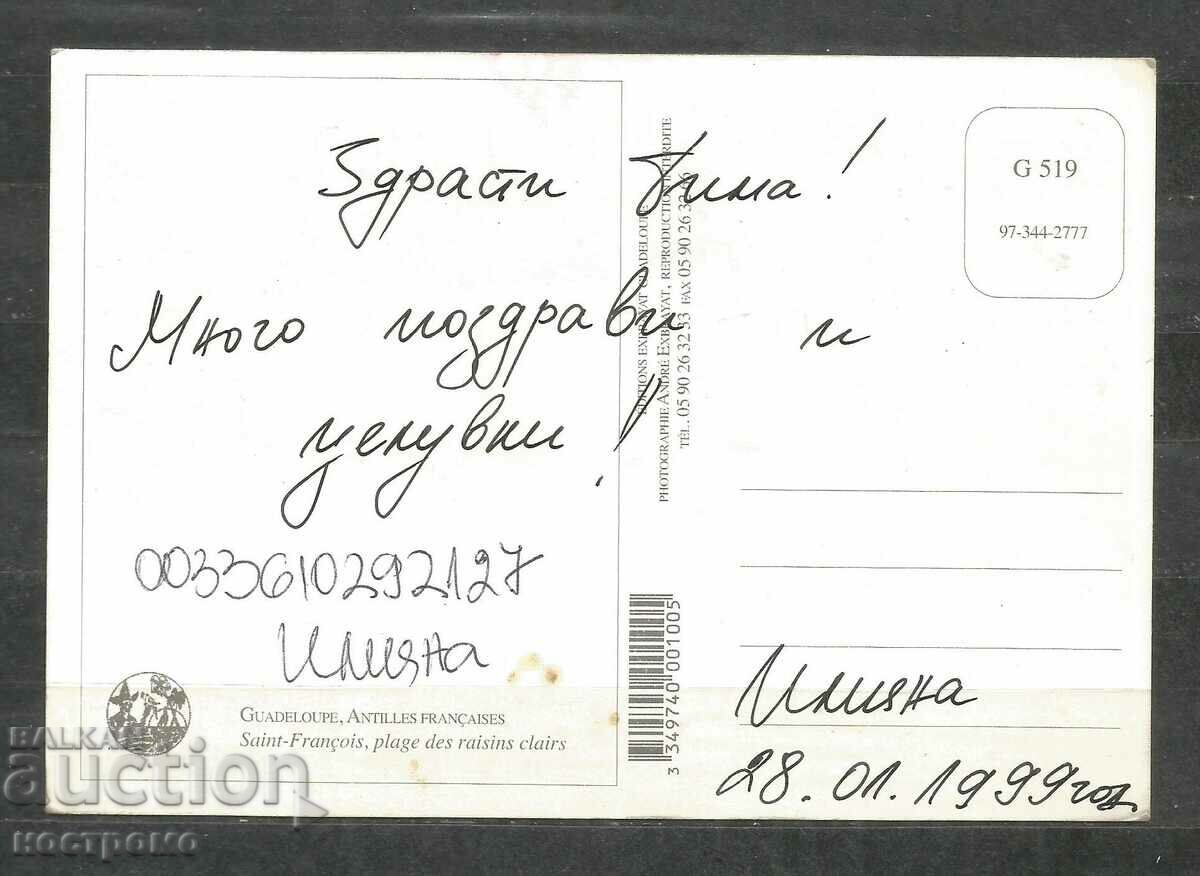 Здрасти Тима!
Много поздрави и
целувки!
0033610292127
Илияна
GUADELOUPE, ANTILLES FRANÇAISES
Saint-François, plage des raisins clairs
ÉDITIONS EXBRAYAT GUADELOUPE
PHOTOGRAPHIE ANDRÉ EXBRAYAT, REPRODUCTION INTERDITE
TÉL. 05 90 26 32 33 FAX 05 90 26 32
3 349740 001005
G 519
97-344-2777
Илияна
28.01.1999год.
BALKAN
auction
костромо